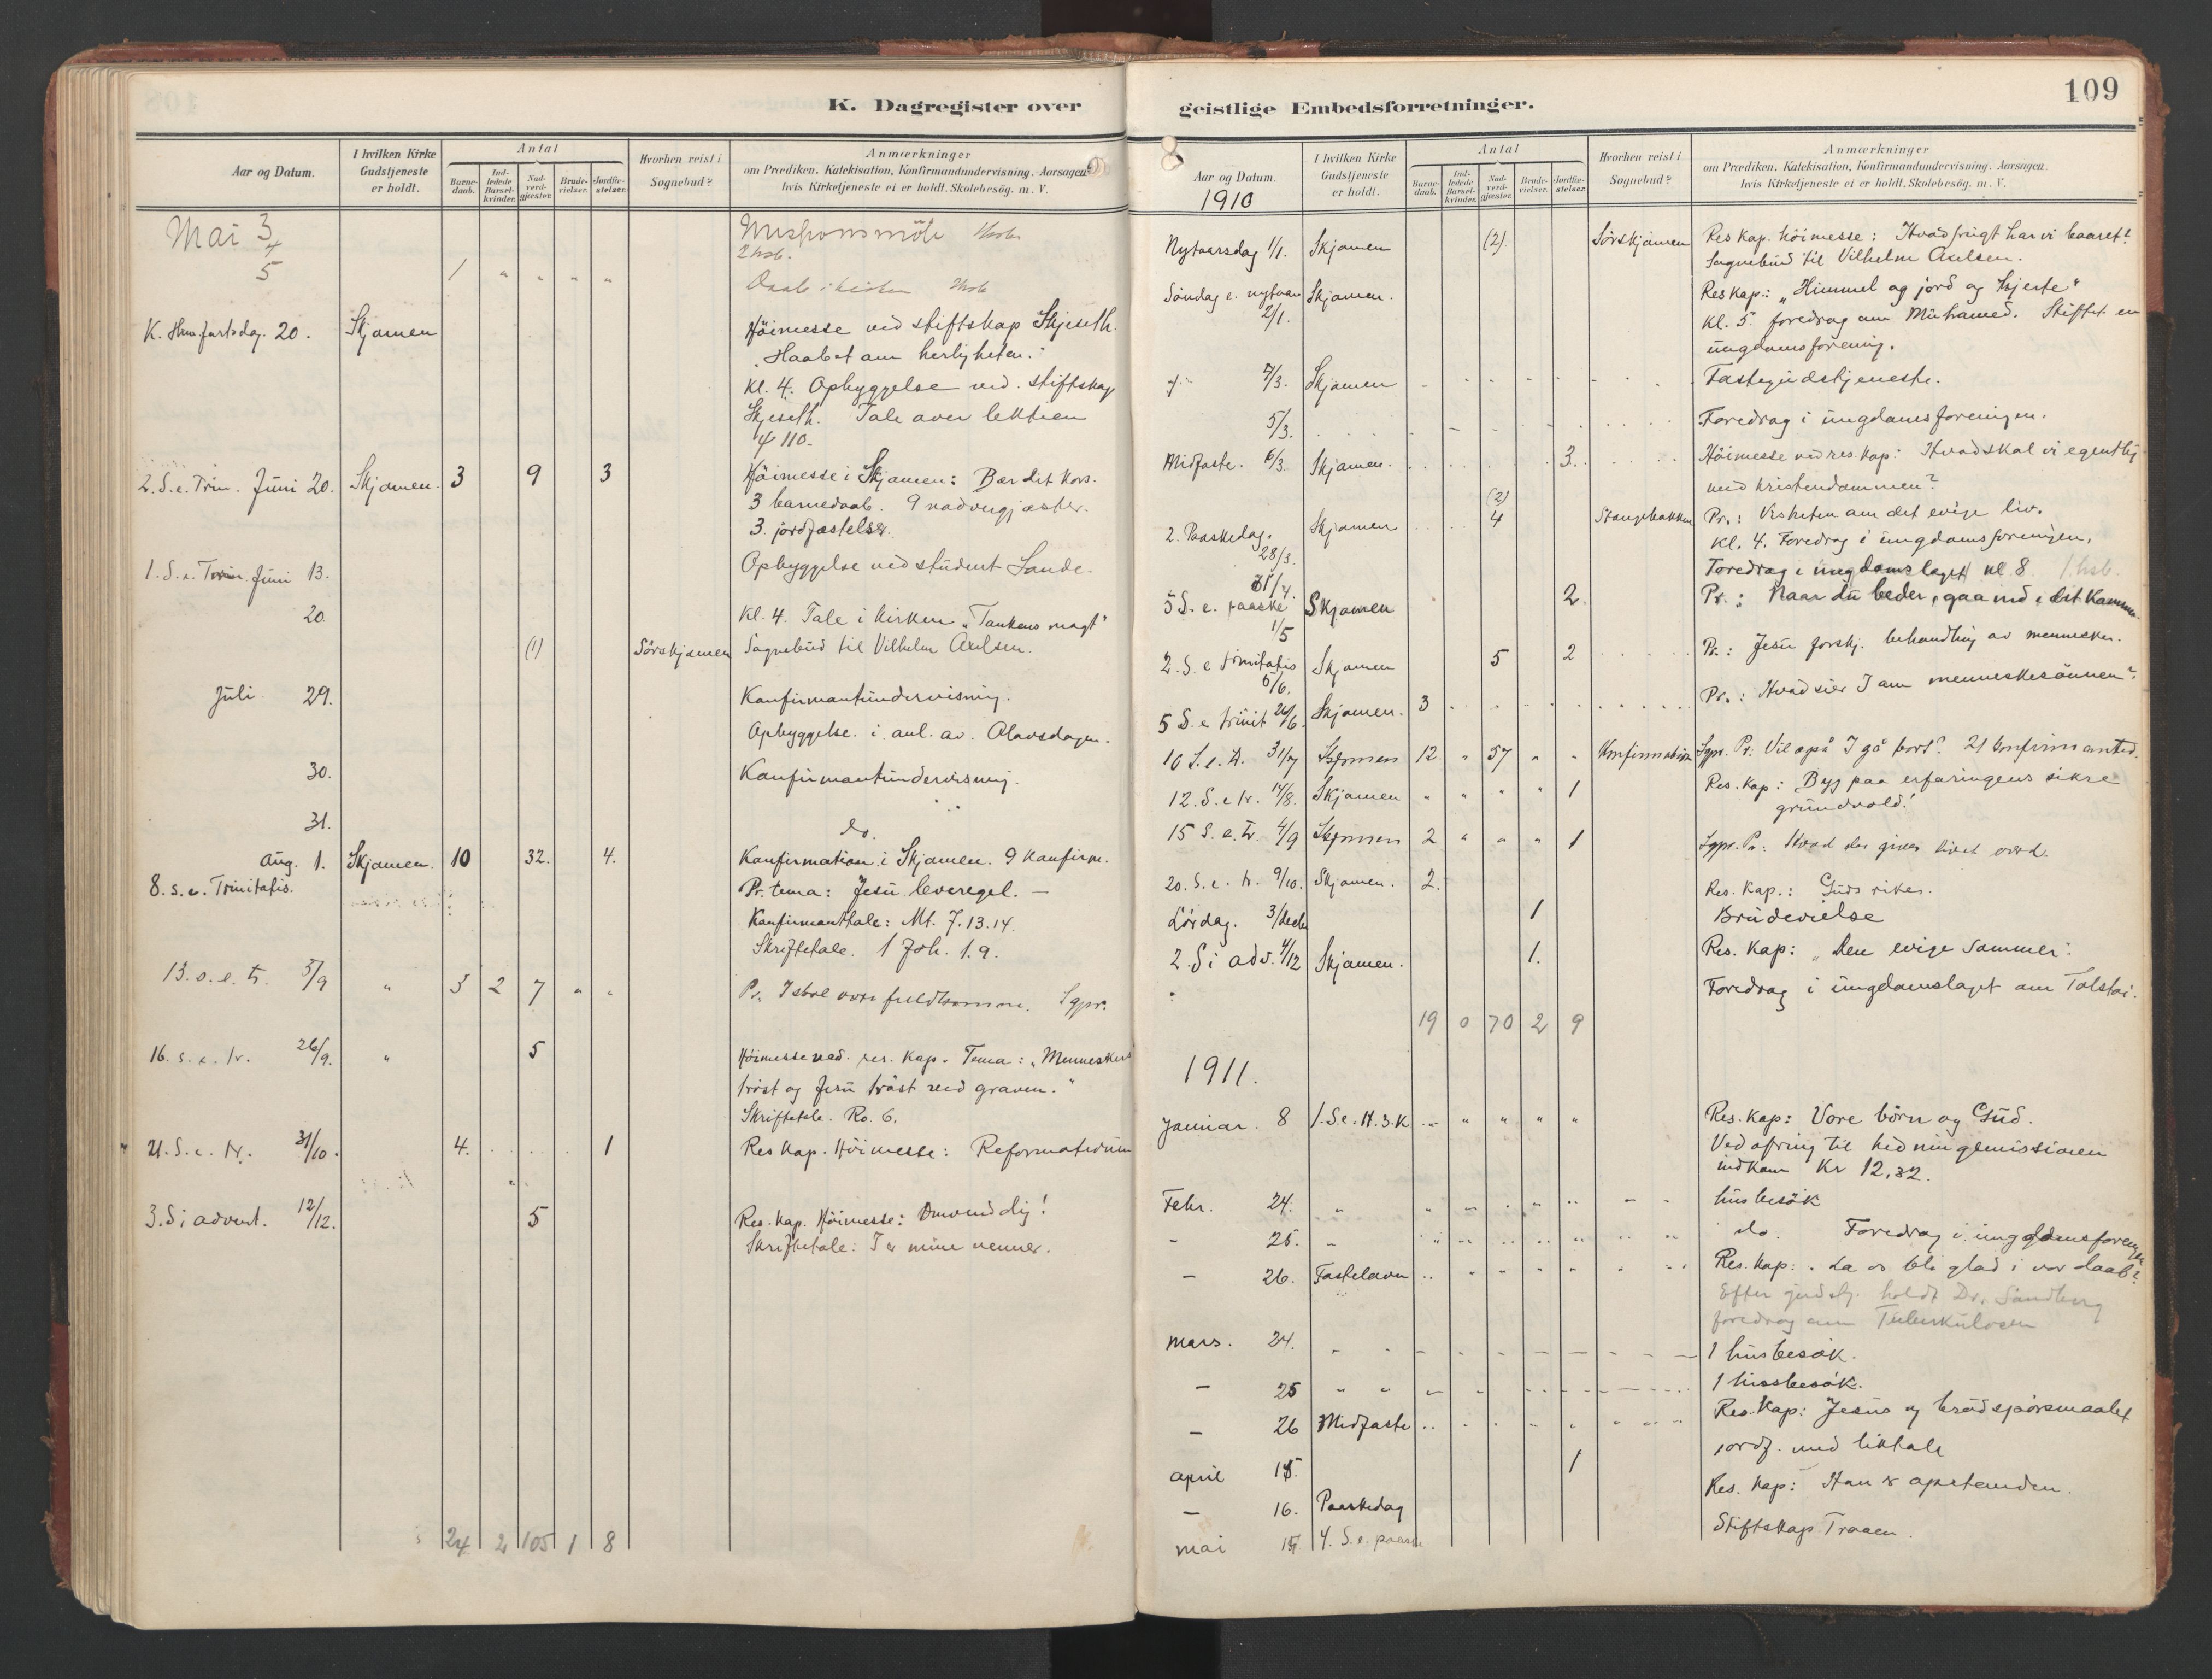 K. Dagregister over
Aar og Datum.
I hvilken Kirke Gudstjeneste er holdt.
Antal
Barne-daab.
Ind-ledede Barsel-kvinder.
Nad-verd-gjæster.
Brude-vielser.
Jordfæ-stelser.
Hvorhen reist i Sognebud?
Anmærkninger
om Prædiken, Katekisation, Konfirmandundervisning. Aarsagen,
hvis Kirketjeneste ei er holdt. Skolebesøg. m. V.
Mai 3 Missionsmöte
4
5 1 " " " " Daab i kirken
K. Him.fartsdag. 20. Skjomen Höimesse ved stiftskap Skjeseth.
"Haabet om herligheten."
kl. 4. Opbyggelse ved stiftskap
Skjeseth. Tale over lektien
ψ 110.
2. S. e. Trin. Juni 20. Skjomen. 3 9 3 Höimesse i Skjomen: Bær dit kors.
3 barnedaab. 9 nadvergjæster.
3 jordfæstelser.
1. S. e. Trin. Juni 13. Opbyggelse ved student Sande.
20. kl. 4. Tale i kirken "Tankens magt"
(1) Sörskjomen Sognebud til Vilhelm Axelsen.
Juli 29. Konfirmantundervisning.
Opbyggelse i anl. av Olavsdagen.
30. Konfirmantundervisning.
31. do.
Aug. 1. Skjomen. 10 32. 4. Konfirmation i Skjomen. 9 konfirm.
8. s. e. Trinitatis. Pr. tema: Jesu leveregel. —
Konfirmanttale: Mt. 7.13.14.
Skriftetale. 1 Joh. 1.9.
13. s. e. tr. 5/9 " 3 2 7 " " Pr. Sgpr.
16. s. e. tr. 26/9. " 5 Höimesse ved res. kap. Tema: "Menneskers
tröst og Jesu tröst ved graven."
Skriftetale. Ro. 6.
21. S. e. tr. 31/10. 4. 1 Res kap. Höimesse: Reformationen
3. S i advent. 12/12. 5 Res. kap. Höimesse: Omvend dig!
Skriftetale: I er mine venner.
24 2 105 1 8
109
geistlige Embedsforretninger.
Aar og Datum.
I hvilken Kirke Gudstjeneste er holdt.
Antal
Barne-daab.
Ind-ledede Barsel-kvinder.
Nad-verd-gjæster.
Brude-vielser.
Jordfæ-stelser.
Hvorhen reist i Sognebud?
Anmærkninger
om Prædiken, Katekisation, Konfirmandundervisning. Aarsagen,
hvis Kirketjeneste ei er holdt. Skolebesøg. m. V.
1910
Nytaarsdag 1/1. Skjomen (2). Sörskjomen Res kap. höimesse: Hvad frugt har vi baaret?
Sognebud til Vilhelm Axelsen.
Söndag e. nytaar 2/1. Skjomen. Res kap.: "Himmel og jord og hjerte"
kl. 5. foredrag om Muhamed. Stiftet en
ungdomsforening.
4/3. Skjomen Fastegudstjeneste.
5/3. Foredrag i ungdomsforeningen.
Midfaste. 6/3. Skjomen. 3. Höimesse ved res. kap: Hvad skal vi egentlig
med kristendommen?
2. Paaskedag. 28/3. Skjomen (2) 4 Stangebakken Pr.: Visheten om det evige liv.
kl. 4. Foredrag i ungdomsforeningen.
Foredrag i ungdomslaget kl 8. 1 hsb.
5 S. e. paaske 1/5 Skjomen 2. Pr.: Naar du beder, gaa ind i dit kammer
2. S. e trinitatis 5/6. Skjomen 5 2 Pr.: Jesu forskj. behandling av mennesker.
5 S. e. trinit 26/6. Skjomen. 3 Pr.: Hvad sier I om menneskesönnen?
10 S. e. tr. 31/7 Skjomen 12 " 57 " " Konfirmation Sgpr. Pr: Vil også I gå bort? 21 konfirmanter.
12. S. e tr. 14/8. Skjomen " " " " 1 Res. kap: Byg paa erfaringens sikre
grundvold!
15 S. e. tr. 4/9 Skjomen 2 " " " 1 Sgpr. Pr: Hvad der giver livet værd.
20. S. e. tr. 9/10. Skjomen. 2. Res. kap.: Guds rike.
Lördag. 3/decbr 1 Brudevielse
2. S i adv. 4/12 Skjomen. 1. Res. kap: "Den evige sommer."
Foredrag i ungdomslaget om Tolstoi.
19 0 70 2 9
1911.
Januar. 8 1. S. e. H. 3. K Res. kap: Vore börn og Gud.
Ved ofring til hedningemissionen
indkom kr 12,32.
Febr. 24. husbesök
- 25. do. Foredrag i ungdomsforeningen
- 26. Fastelavn Res. kap: La os bli glad i vor daab?
Efter gudstj. holdt Dr. Sandberg
foredrag om Tuberkulosen
Mars. 24. 1 husbesök.
- 25 1 husbesök.
- 26 Midfaste Res. kap: Jesus og brödspörsmaalet
April 15. 1 jordf. med liktale
- 16. Paaskedag Res. kap: Han er opstanden.
Mai 4. S. e. paaske Stiftskap Traaen.